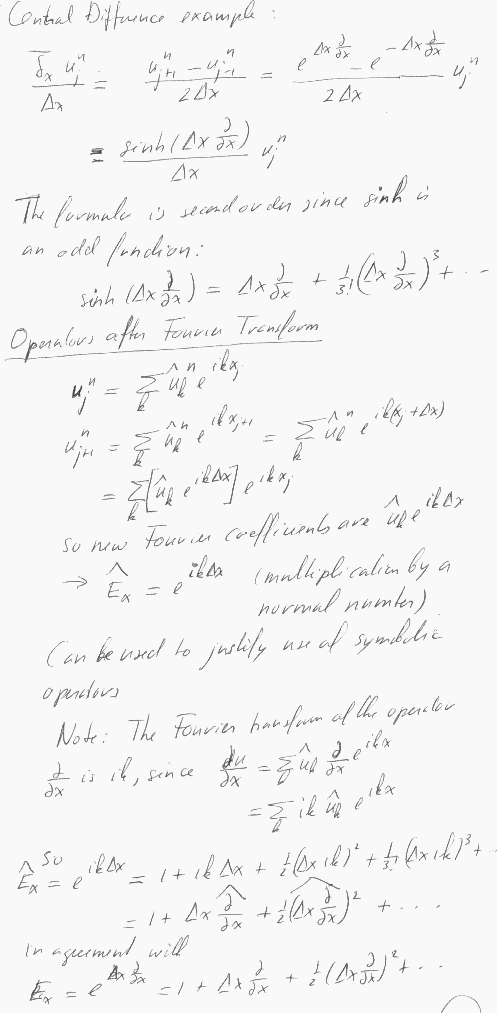 Central Difference example :
δ̄ₓ uⱼⁿ / Δx = (uⱼ₊₁ⁿ − uⱼ₋₁ⁿ) / 2Δx = (e^{Δx ∂/∂x} − e^{−Δx ∂/∂x}) / 2Δx uⱼⁿ
= sinh(Δx ∂/∂x) / Δx uⱼⁿ
The formula is second order since sinh is
an odd function:
sinh (Δx ∂/∂x) = Δx ∂/∂x + 1/3! (Δx ∂/∂x)³ + ··
Operators after Fourier Transform
uⱼⁿ = Σ_k û_kⁿ e^{ikxⱼ}
uⱼ₊₁ⁿ = Σ_k û_kⁿ e^{ikxⱼ₊₁} = Σ_k û_kⁿ e^{ik(xⱼ+Δx)}
= Σ_k [û_k e^{ikΔx}] e^{ikxⱼ}
so new Fourier coefficients are û_k e^{ikΔx}
→ Êₓ = e^{ikΔx} (multiplication by a
normal number)
Can be used to justify use of symbolic
operators
Note: The Fourier transform of the operator
∂/∂x is ik, since ∂u/∂x = Σ_k û_k ∂/∂x e^{ikx}
= Σ_k ik û_k e^{ikx}
so
Êₓ = e^{ikΔx} = 1 + ikΔx + 1/2 (Δx ik)² + 1/3! (Δx ik)³ + ··
= 1 + Δx ∂̂/∂x + 1/2 (Δx ∂/∂x)^² + ...
in agreement with
Eₓ = e^{Δx ∂/∂x} = 1 + Δx ∂/∂x + 1/2 (Δx ∂/∂x)² + ··